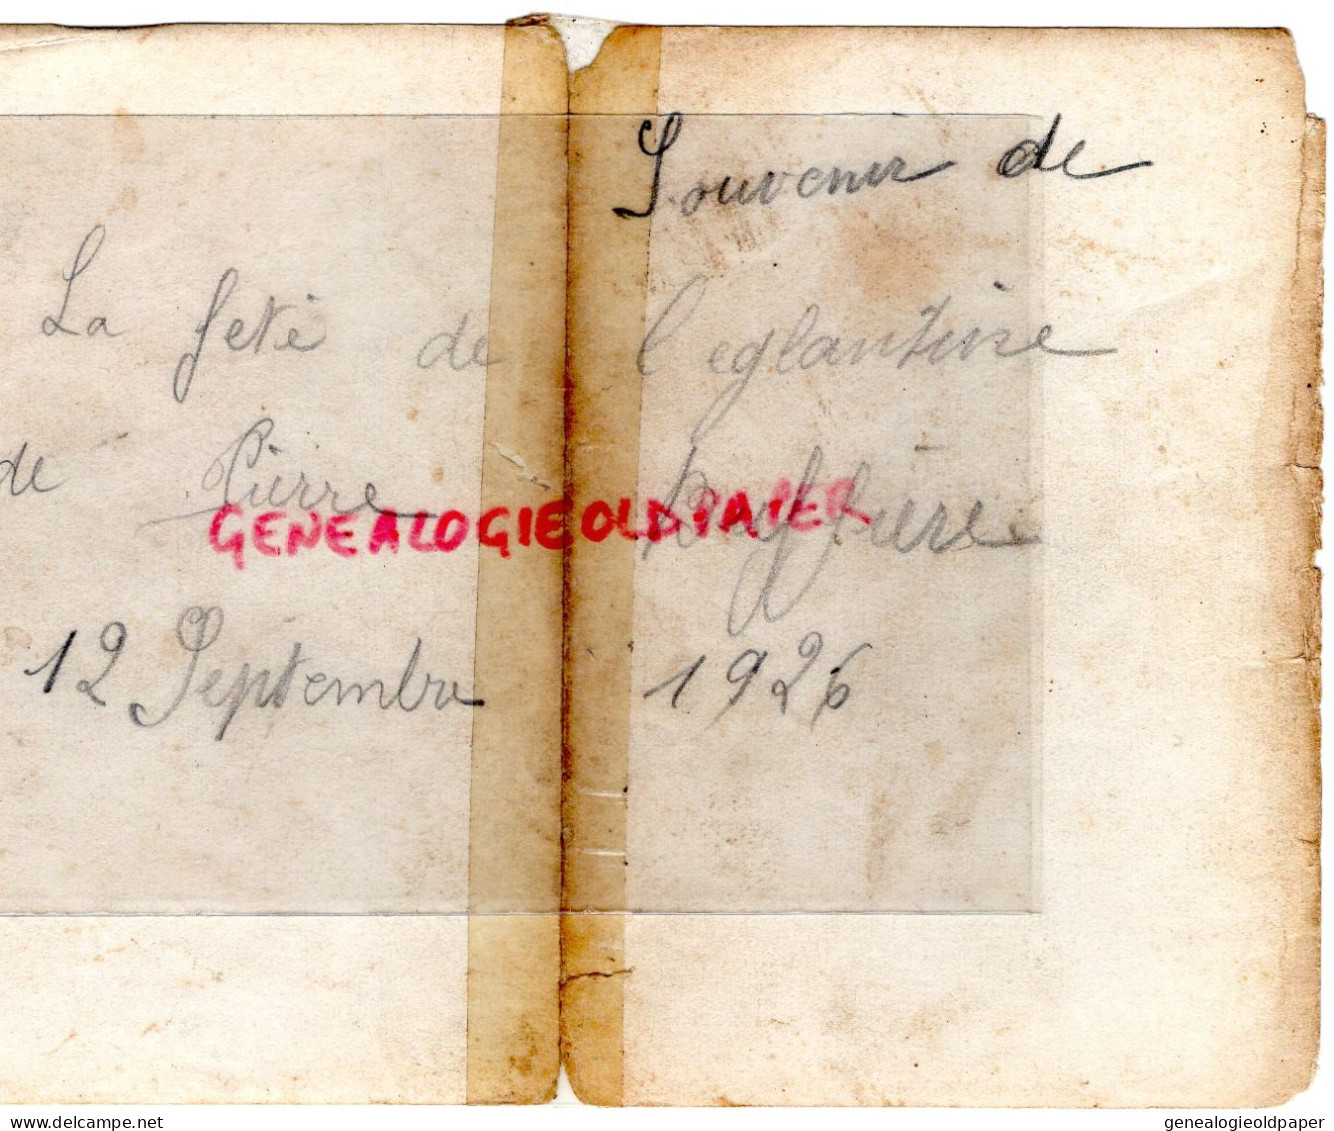 Souvenir de
La fete de l'eglantine
de Pierre Buffière
GENEALOGIEOLDPAPER
12 Septembre 1926
genealogieoldpaper